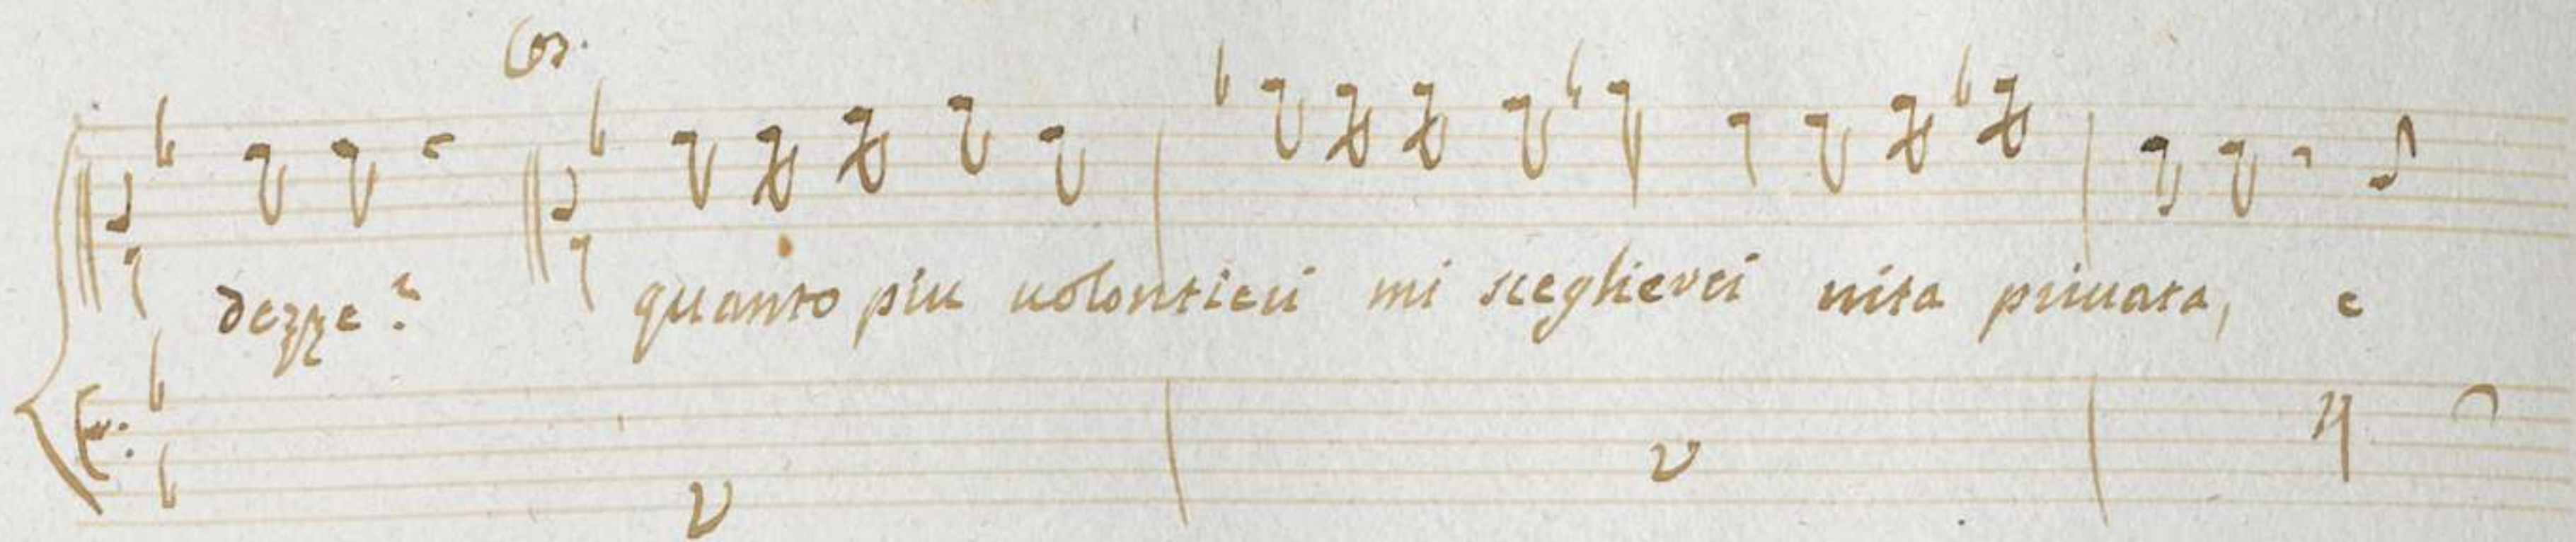 Cos.
dezze? quanto piu uolontieri mi sceglierei uita priuata, e